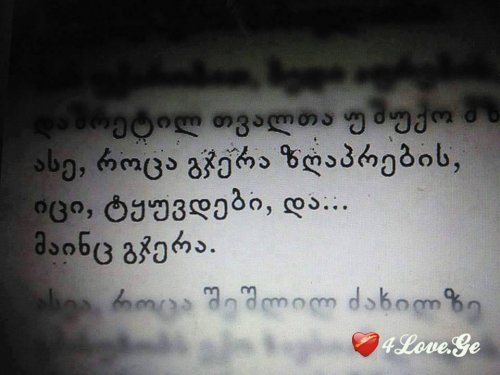 დაშრეტილ თვალთა უშუქო მზ
ასე, როცა გჯერა ზღაპრების,
იცი, ტყუვდები, და...
მაინც გჯერა.
ასეა, როცა შეშლილ ძახილზე
4Love.Ge